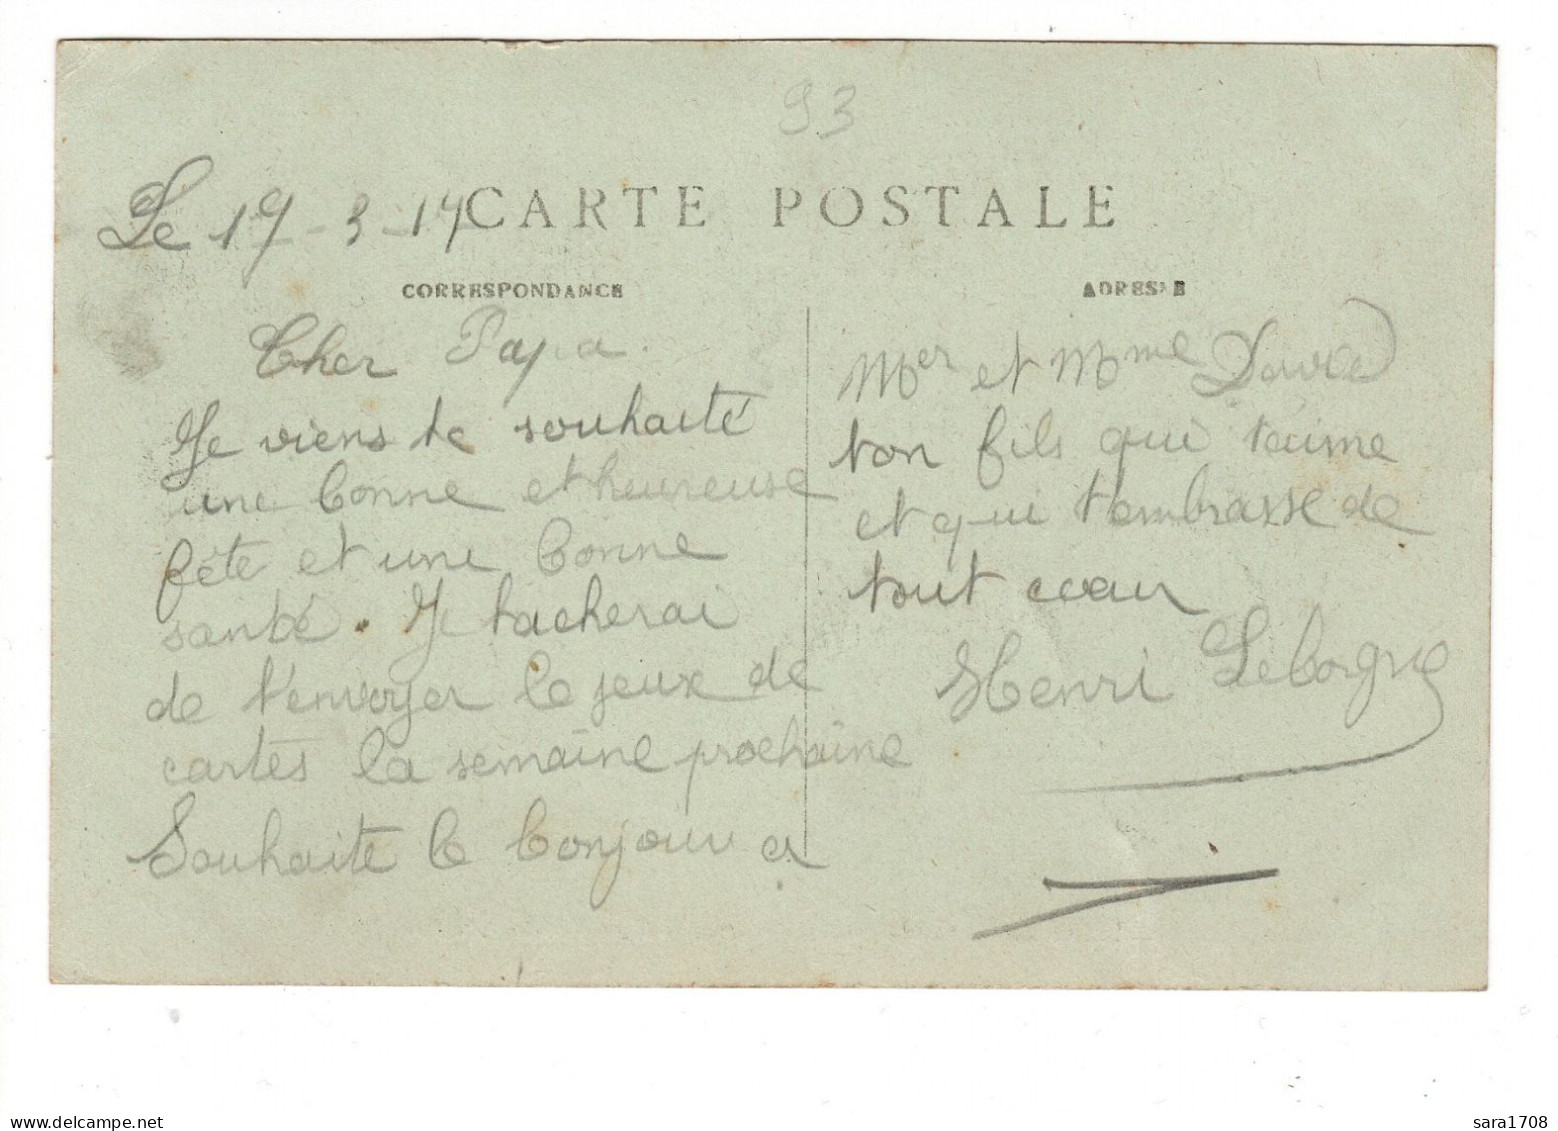 93
Le 19-3-14 CARTE POSTALE
CORRESPONDANCE
Cher Papa.
Je viens te souhaité
une bonne et heureuse
fête et une bonne
santé. Je tacherai
de t'envoyer le jeux de
cartes la semaine prochaine
Souhaite le bonjour a
ADRESSE
Mer et Mme
ton fils qui t'aime
et qui t'embrasse de
tout coeur
Henri Leborgne
sara1708